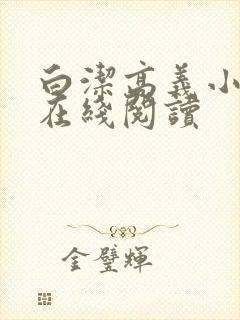 白潔高義小
在綫閱讀
金璧輝